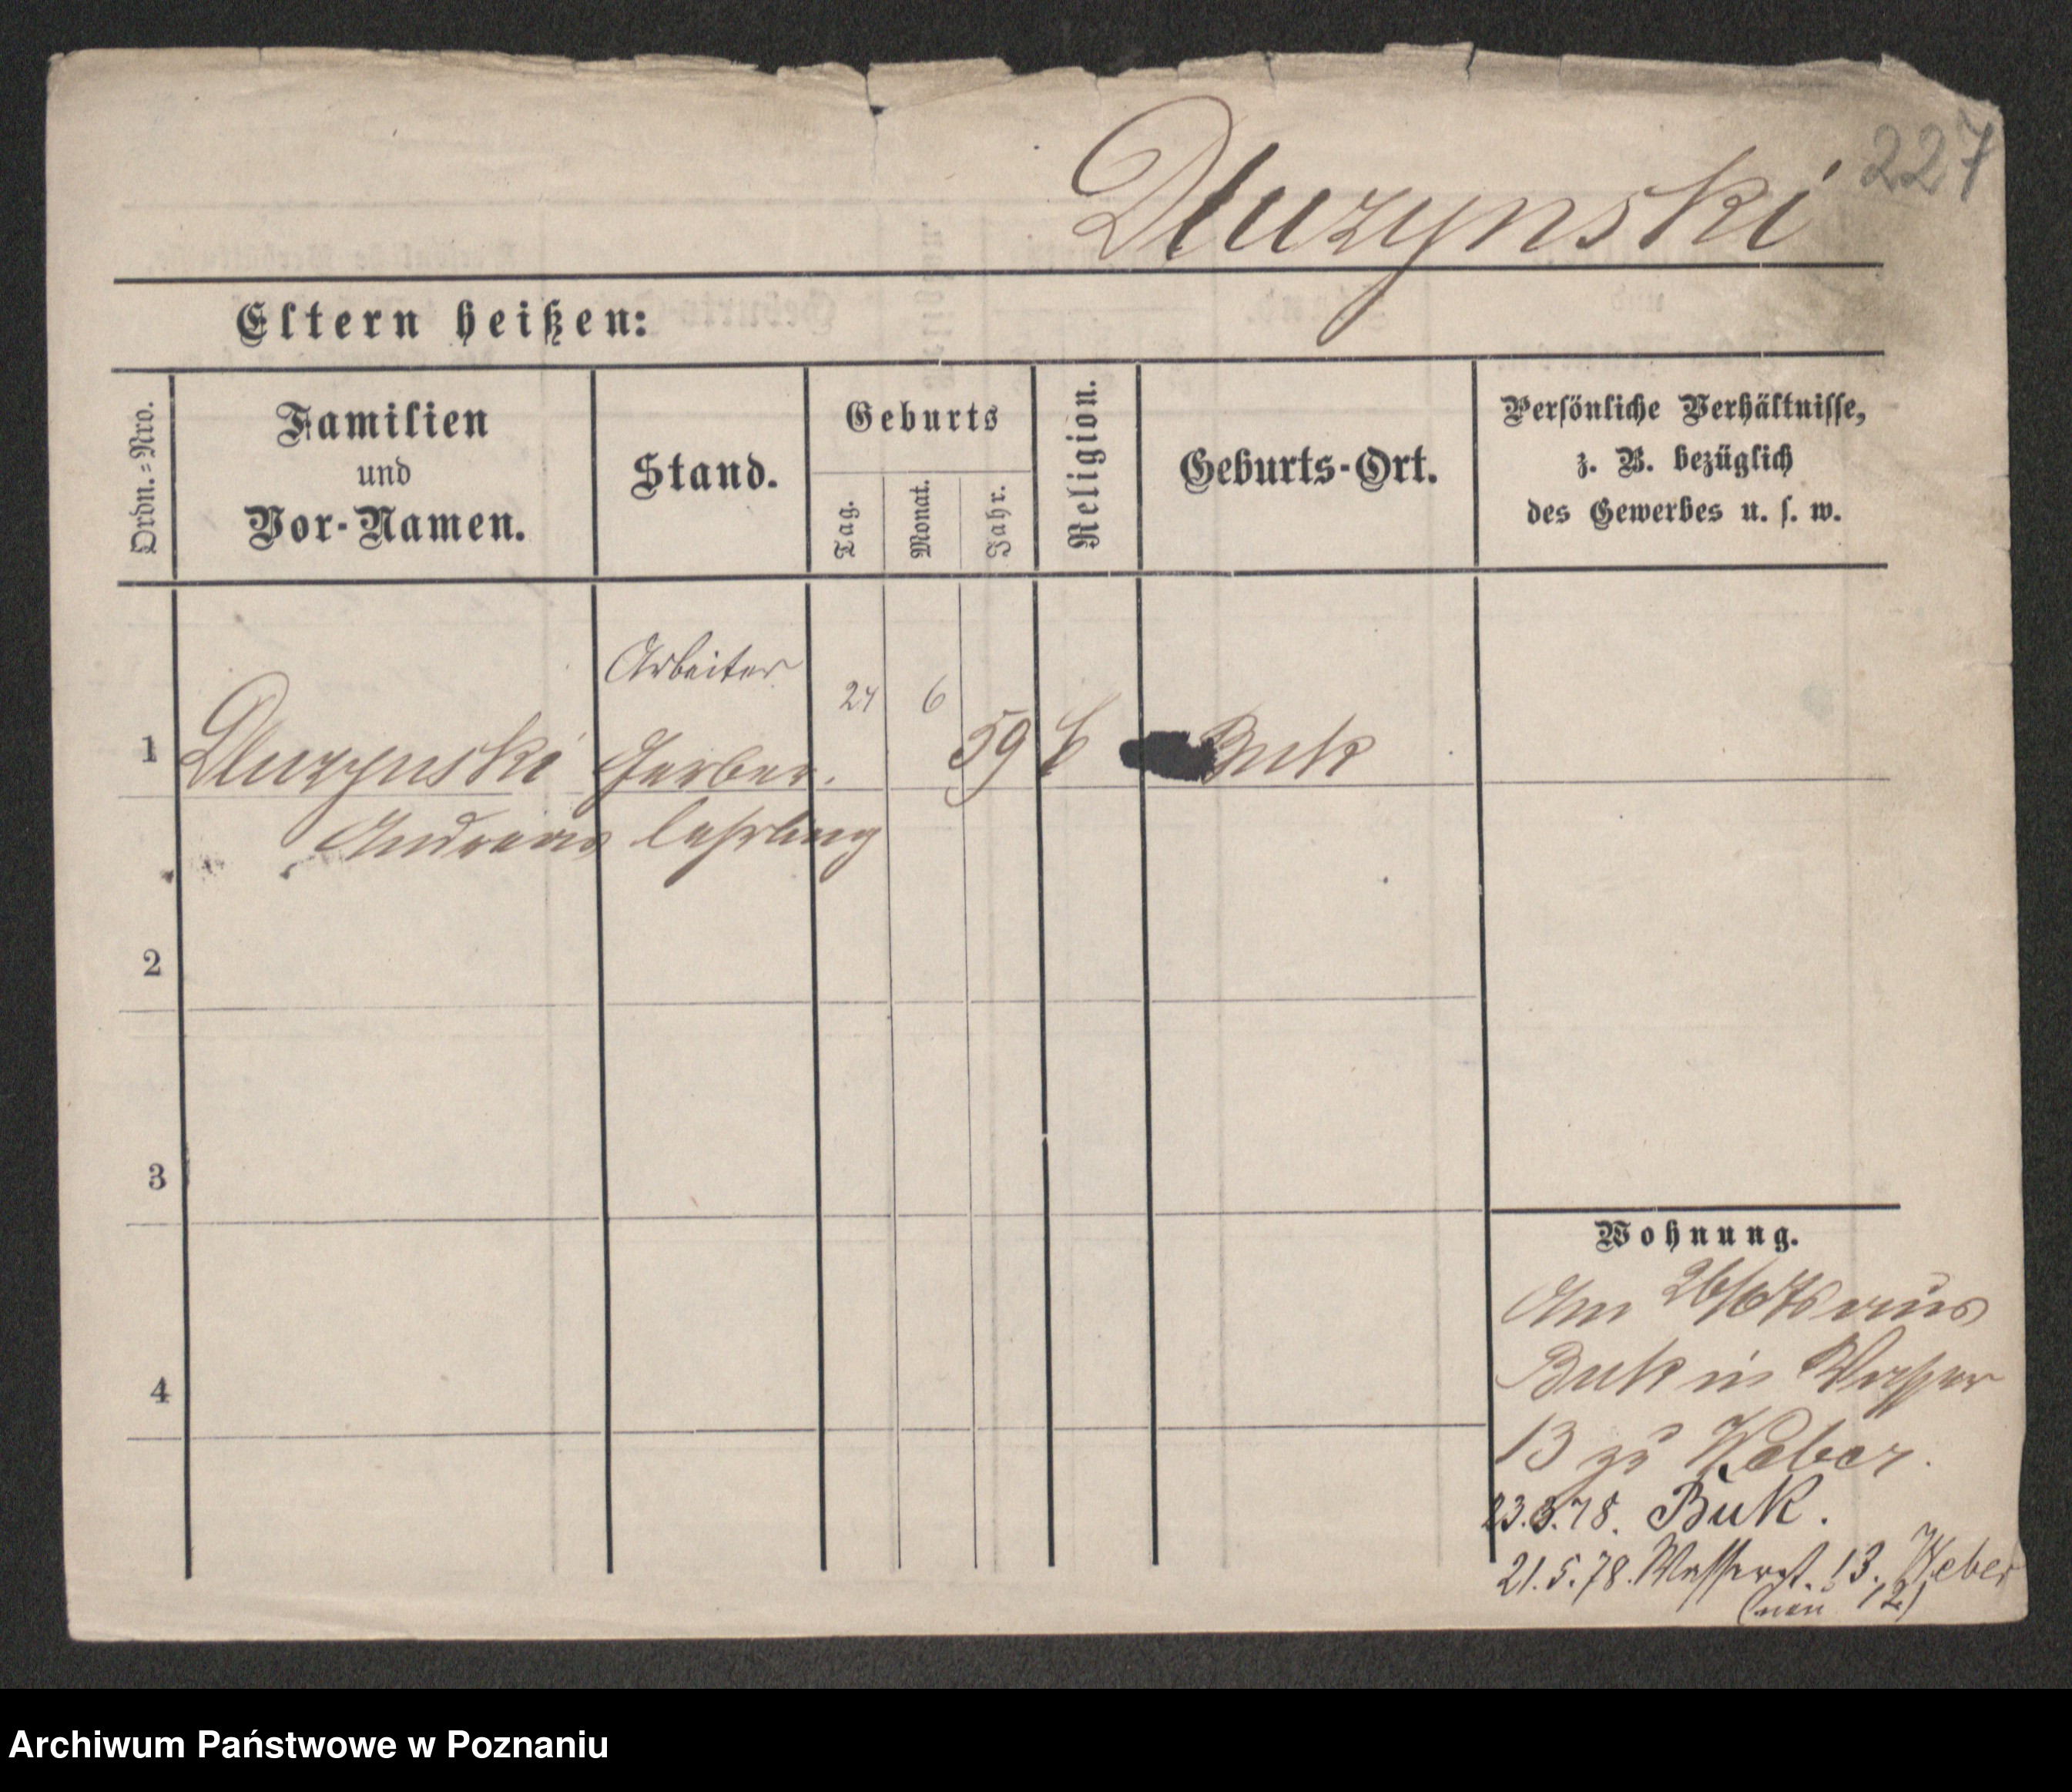 227
Dluzynski
Eltern heißen:
Ordn.=Nro.
Familien
und
Vor-Namen.
Stand.
Geburts
Tag.
Monat.
Jahr.
Religion.
Geburts-Ort.
Persönliche Verhältnisse,
z. B. bezüglich
des Gewerbes u. s. w.
Arbeiter
24 6
1 Dluzynski Gerber. 59 k Buk
Andreas lehrling
2
3
4
Wohnung.
Am 26/6 76 aus
Buk in Wasser
13 zu Weber.
23.3.78. Buk.
21.5.78. Wasserst. 13. Weber
(neu 12)
Archiwum Państwowe w Poznaniu